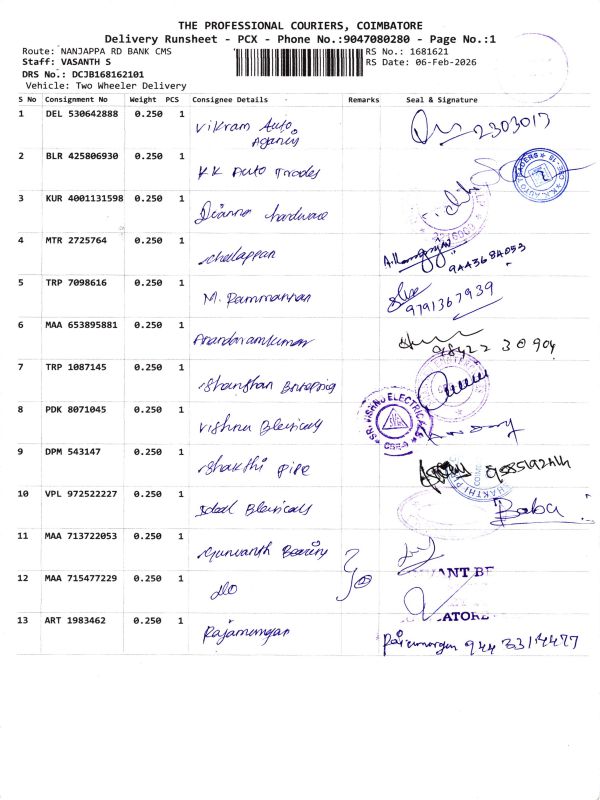 THE PROFESSIONAL COURIERS, COIMBATORE
Delivery Runsheet - PCX - Phone No.:9047080280 - Page No.:1
Route: NANJAPPA RD BANK CMS RS No.: 1681621
Staff: VASANTH S RS Date: 06-Feb-2026
DRS No.: DCJB168162101
Vehicle: Two Wheeler Delivery
S No Consignment No Weight PCS Consignee Details Remarks Seal & Signature
1 DEL 530642888 0.250 1 Vikram Auto 2303017
Agency
2 BLR 425806930 0.250 1 KK Auto Trades
3 KUR 4001131598 0.250 1 Dianna hardware
4 MTR 2725764 0.250 1 Chellappan 9443684053
5 TRP 7098616 0.250 1 M. Rammannan 9791367939
6 MAA 653895881 0.250 1 Anandaramkumar 98422 30904
7 TRP 1087145 0.250 1
8 PDK 8071045 0.250 1 Vishnu
SRI VISHNU ELECTRICALS
CBE-9
9 DPM 543147 0.250 1 Shakthi Pipe
10 VPL 972522227 0.250 1 Ideal Baba
11 MAA 713722053 0.250 1 Gunvanth Bearing
VANT BE
12 MAA 715477229 0.250 1 do
ATORE
13 ART 1983462 0.250 1 Rajamurugan